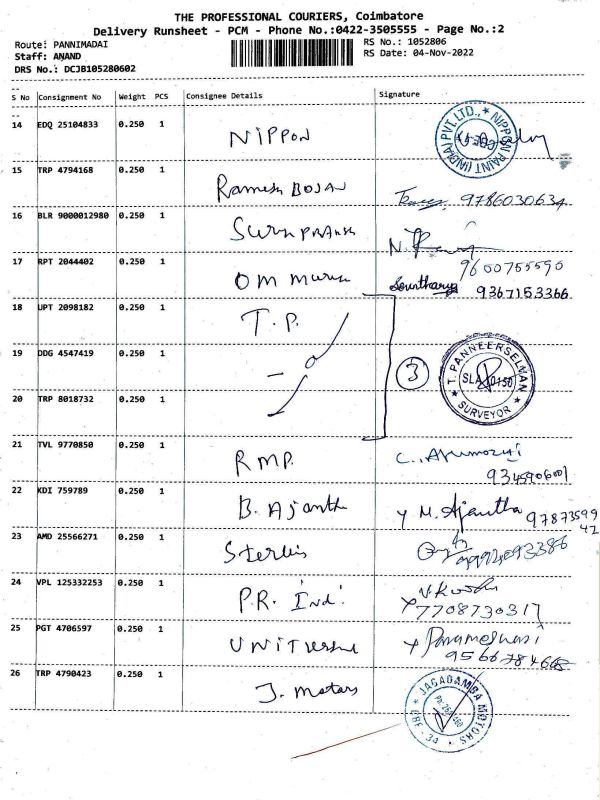 THE PROFESSIONAL COURIERS, Coimbatore
Delivery Runsheet - PCM - Phone No.:0422-3505555 - Page No.:2
Route: PANNIMADAI
RS No.: 1052806
Staff: ANAND
RS Date: 04-Nov-2022
DRS No.: DCJB105280602
--
S No Consignment No Weight PCS Consignee Details Signature
--
14 EDQ 25104833 0.250 1 NIPPON
NIPPON PAINT (INDIA) PVT. LTD.,
15 TRP 4794168 0.250 1 Ramesh
9786030634
16 BLR 9000012980 0.250 1
N.
9600755590
17 RPT 2044402 0.250 1 OM
Sountharya 9367153366
18 UPT 2098182 0.250 1 T.P.
19 DDG 4547419 0.250 1
3
T. PANNEERSELMAN
SURVEYOR
20 TRP 8018732 0.250 1
21 TVL 9770850 0.250 1 RMP.
C. Arumozhi
9345906001
22 KDI 759789 0.250 1 B. Ajantha
M. Ajantha 9787359942
23 AMD 25566271 0.250 1
24 VPL 125332253 0.250 1 P.R. Ind.
7708730317
25 PGT 4706597 0.250 1
Parameswari
9566784668
26 TRP 4790423 0.250 1 J. Motors
JAGADAMBA MOTORS
CBE - 34